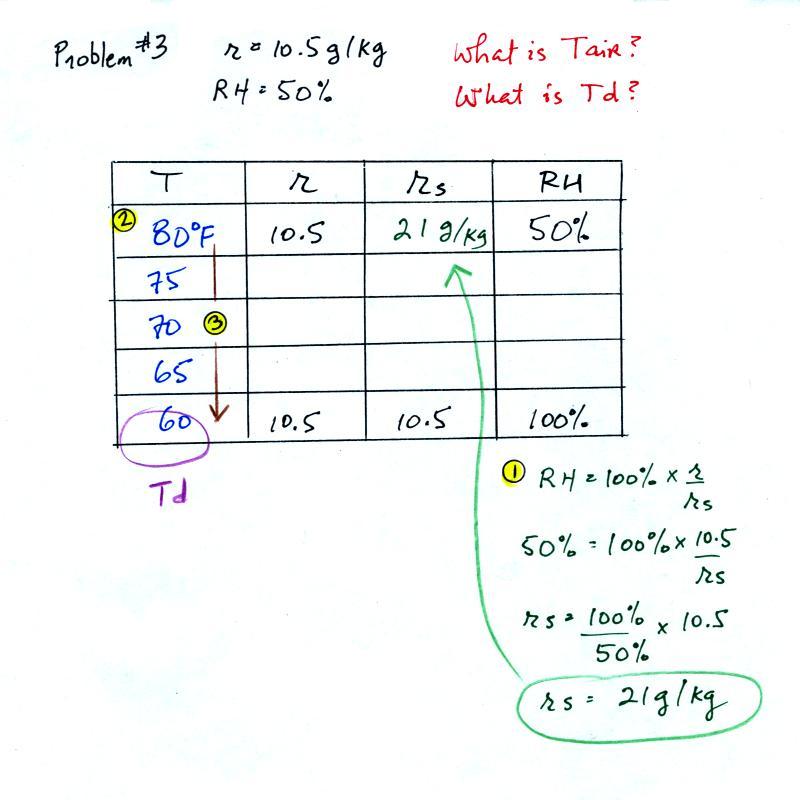 Problem #3 r = 10.5 g/kg What is Tair?
RH = 50% What is Td?
T r rs RH
② 80°F 10.5 21 g/kg 50%
75
70 ③
65
60 10.5 10.5 100%
Td
① RH = 100% x r/rs
50% = 100% x 10.5/rs
rs = 100%/50% x 10.5
rs = 21 g/kg